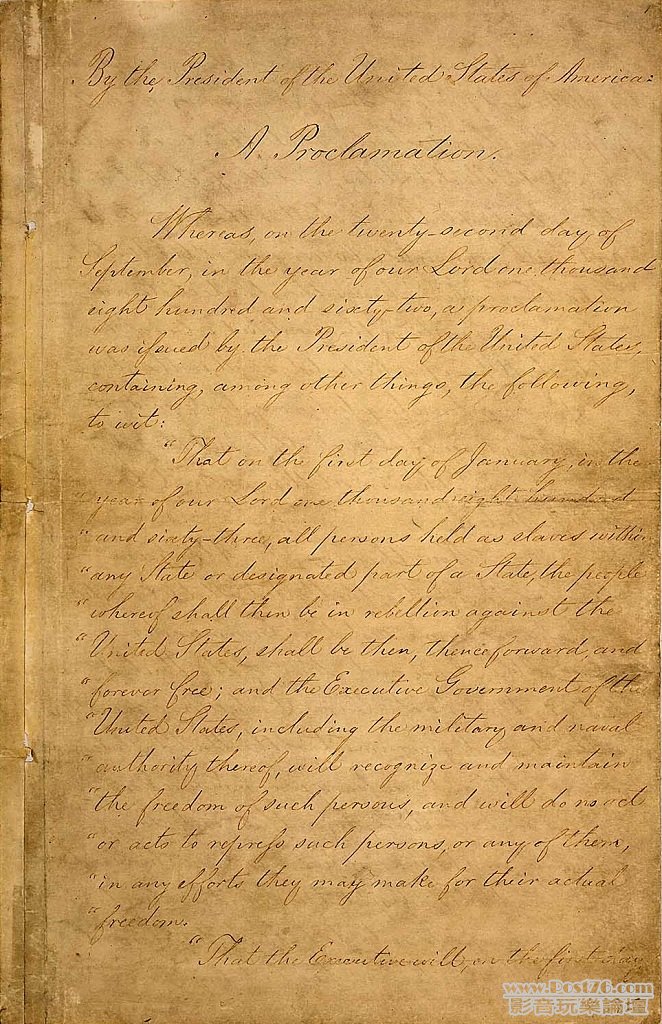 By the President of the United States of America:
A Proclamation.
Whereas, on the twenty-second day of
September, in the year of our Lord one thousand
eight hundred and sixty-two, a proclamation
was issued by the President of the United States,
containing, among other things, the following,
to wit:
"That on the first day of January, in the
"year of our Lord one thousand eight hundred
"and sixty-three, all persons held as slaves within
"any State or designated part of a State, the people
"whereof shall then be in rebellion against the
"United States, shall be then, thenceforward, and
"forever free; and the Executive Government of the
"United States, including the military and naval
"authority thereof, will recognize and maintain
"the freedom of such persons, and will do no act
"or acts to repress such persons, or any of them,
"in any efforts they may make for their actual
"freedom.
"That the Executive will, on the first day
www.Post76.com
影音玩樂論壇